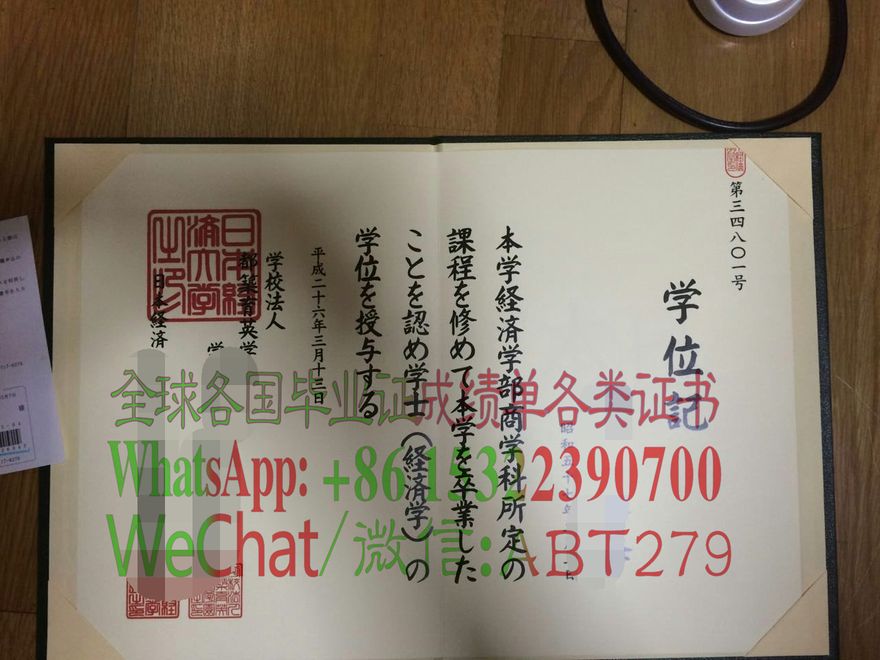 第三四八〇一号
学位記
本学経済学部商学科所定の
課程を修めて本学を卒業した
ことを認め学士（経済学）の
学位を授与する
平成二十六年三月十三日
学校法人
都築育英学
日本経済
日本経
済大学
之印
全球各国毕业证成绩单各类证书
WhatsApp: +86 15322390700
WeChat/微信:ABT279